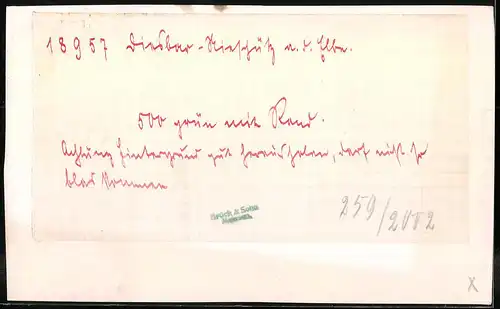 18957 Diesbar-Nieschütz a.d. Elbe.
500 grün mit Rand.
Achtung Hintergrund gut herausholen, darf nicht so
blas kommen
Brück & Sohn
Meissen
259/2002
X